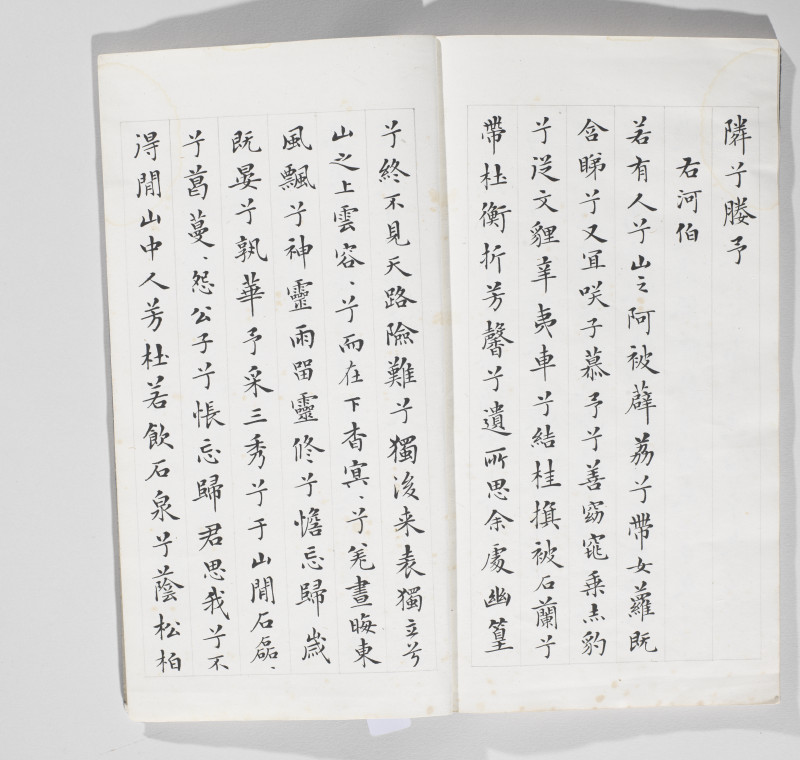 隣兮媵予
右河伯
若有人兮山之阿被薜荔兮帶女蘿既
含睇兮又宜咲子慕予兮善窈窕乗赤豹
兮從文貍辛夷車兮結桂旗被石蘭兮
帶杜衡折芳馨兮遺所思余處幽篁
兮終不見天路險難兮獨後来表獨立兮
山之上雲容、兮而在下杳冥、兮羌晝晦東
風飄兮神靈雨留靈脩兮憺忘歸歲
既晏兮孰華予采三秀兮于山閒石磊、
兮葛蔓、怨公子兮悵忘歸君思我兮不
得閒山中人芳杜若飲石泉兮蔭松柏